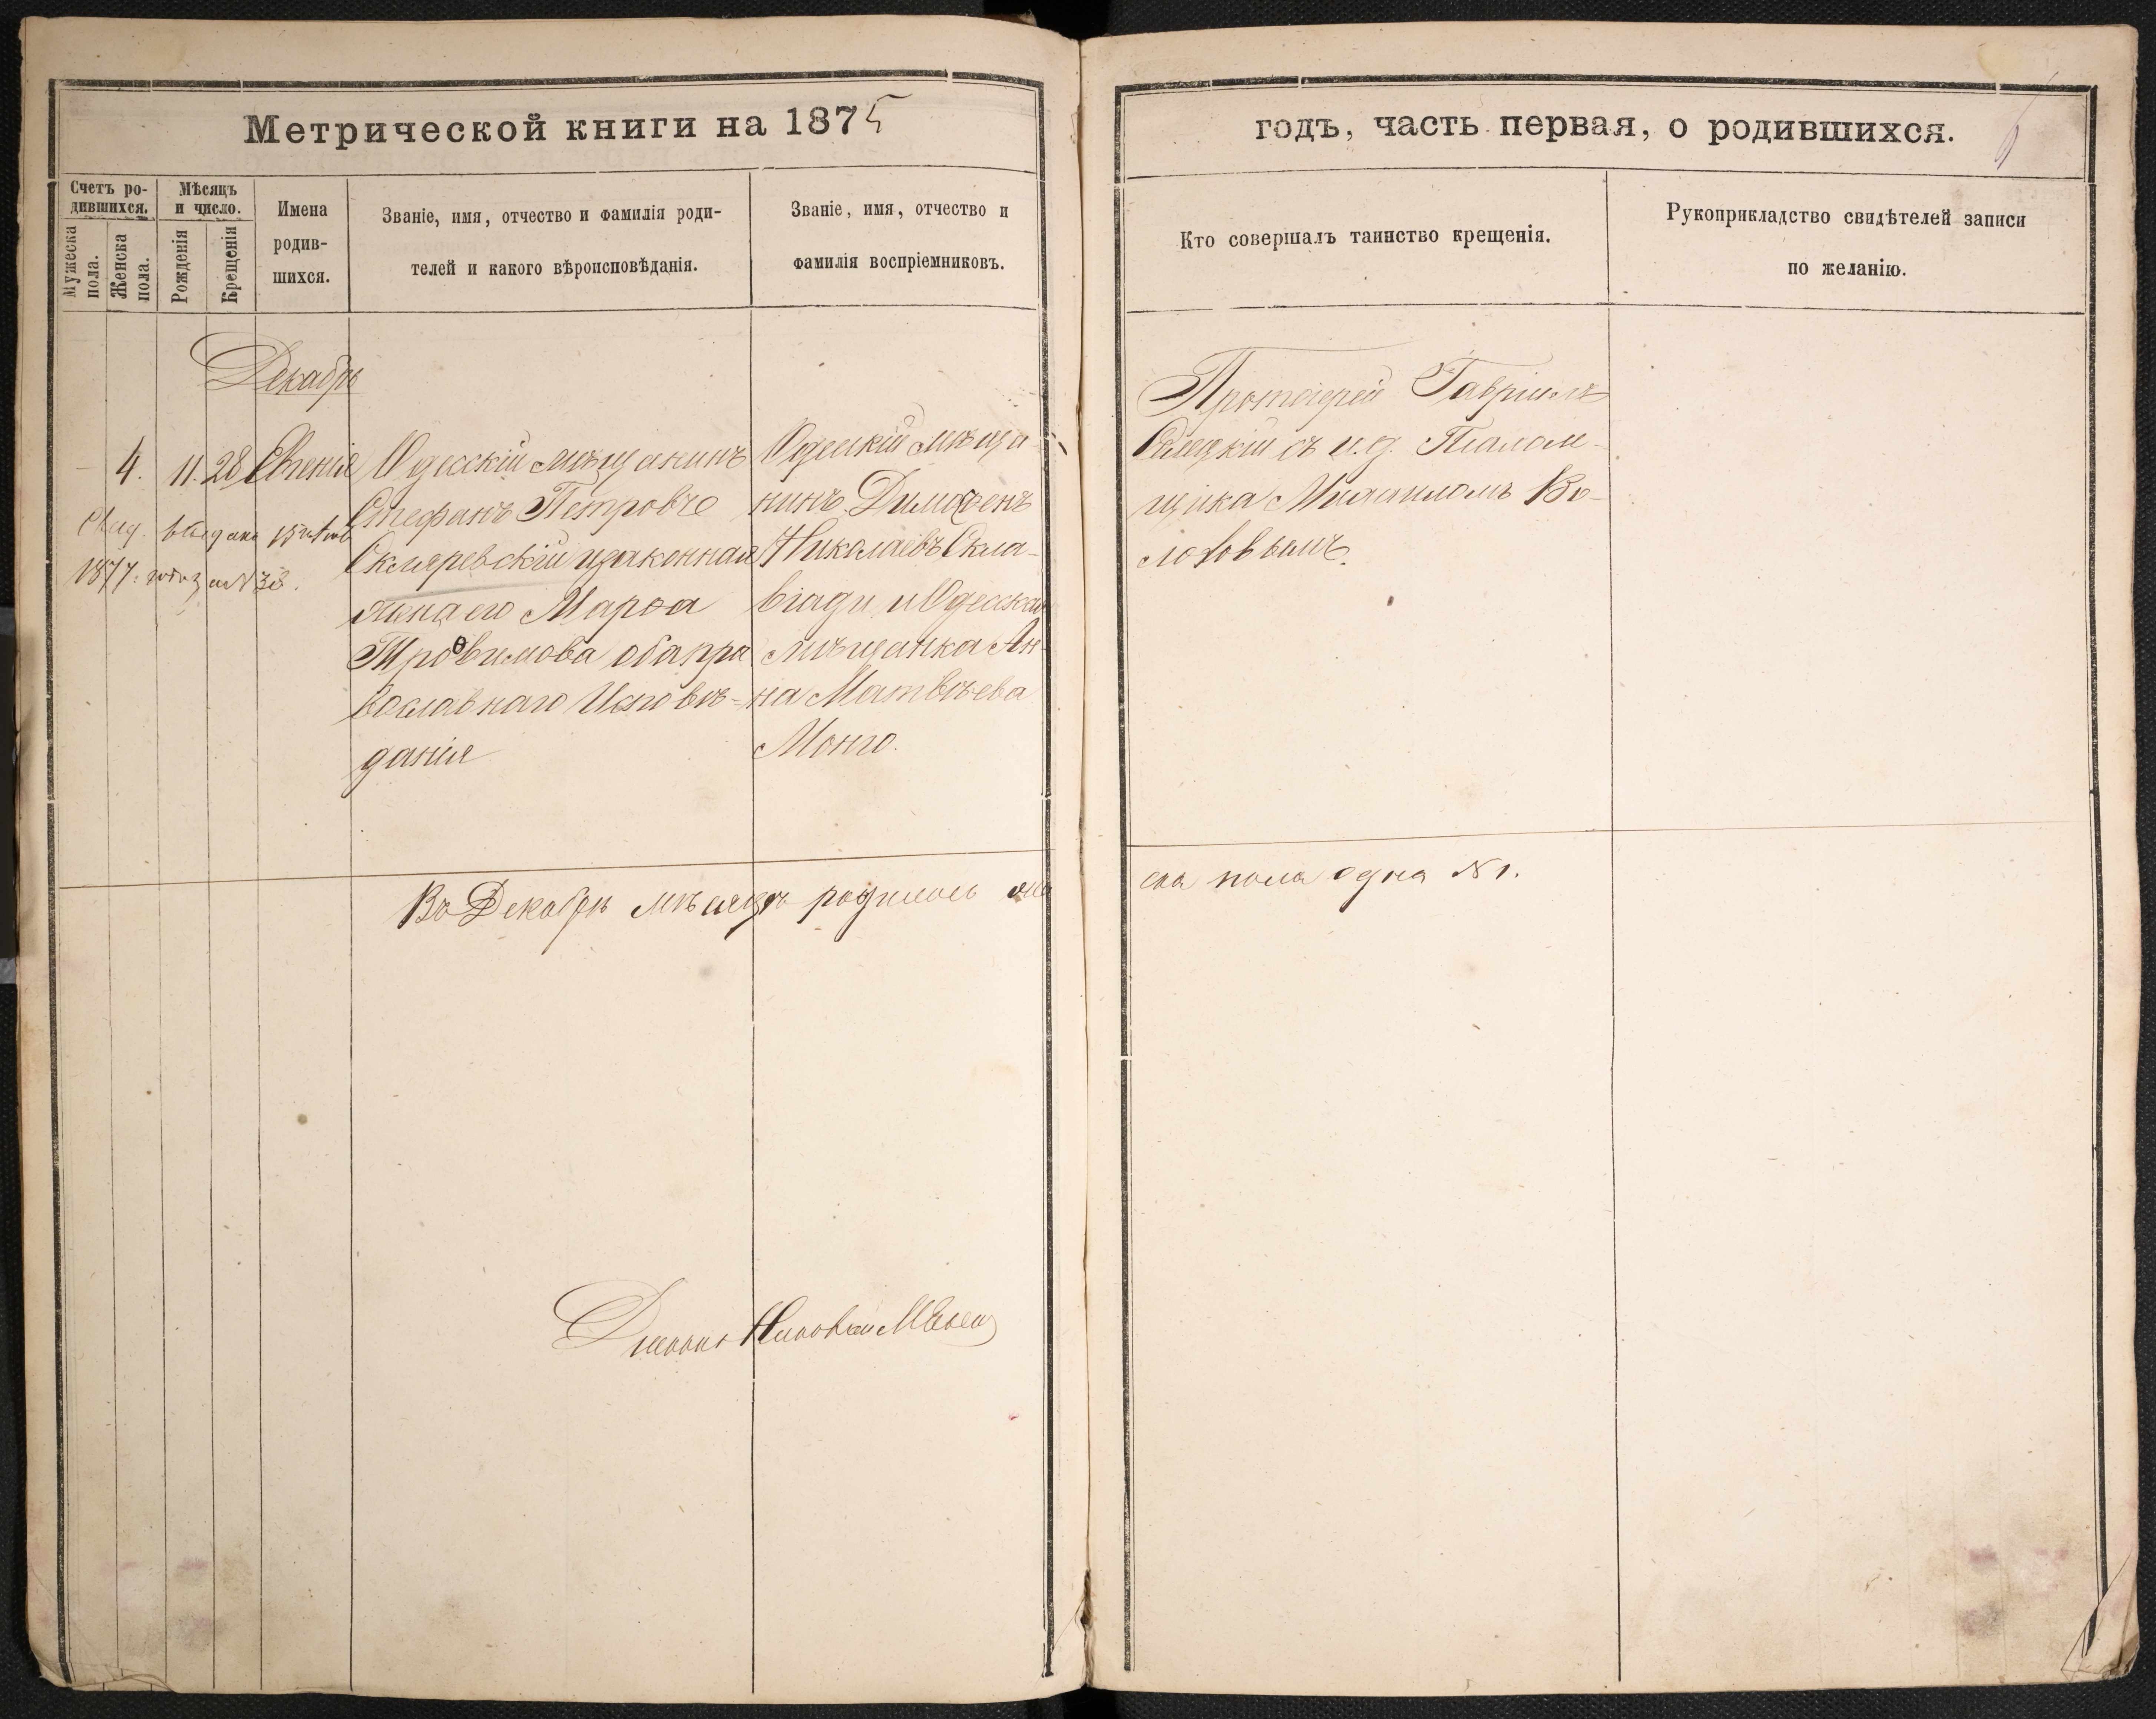 Метрической книги на 1875
годъ, часть первая, о родившихся.
Счетъ ро-
дившихся.
Мужеска
пола.
Женска
пола.
Мѣсяцъ
и число.
Рожденія
Крещенія
Имена
родив-
шихся.
Званіе, имя, отчество и фамилія роди-
телей и какого вѣроисповѣданія.
Званіе, имя, отчество и
фамилія воспріемниковъ.
Кто совершалъ таинство крещенія.
Рукоприкладство свидѣтелей записи
по желанію.
Декабрь
4. 11. 28 Евгенія
выдано
1877 38.
Одесскій мѣщанинъ
Стефанъ Петровъ
Скляревскій изаконная
жена его Марѳа
Троѳимова оба пра
вославнаго Исповѣ-
данія
Одесскій мѣща-
нинъ Димосѳенъ
Николаевъ Скла-
віади и Одесская
мѣщанка Ан-
на Матвѣева
Монго.
Протоіерей Гавріилъ
Селецкій съ и.д. Псалом-
щика Михаиломъ Во-
ловымъ.
Въ Декабрѣ мѣсяцѣ родилось жен
ска пола одна №1.